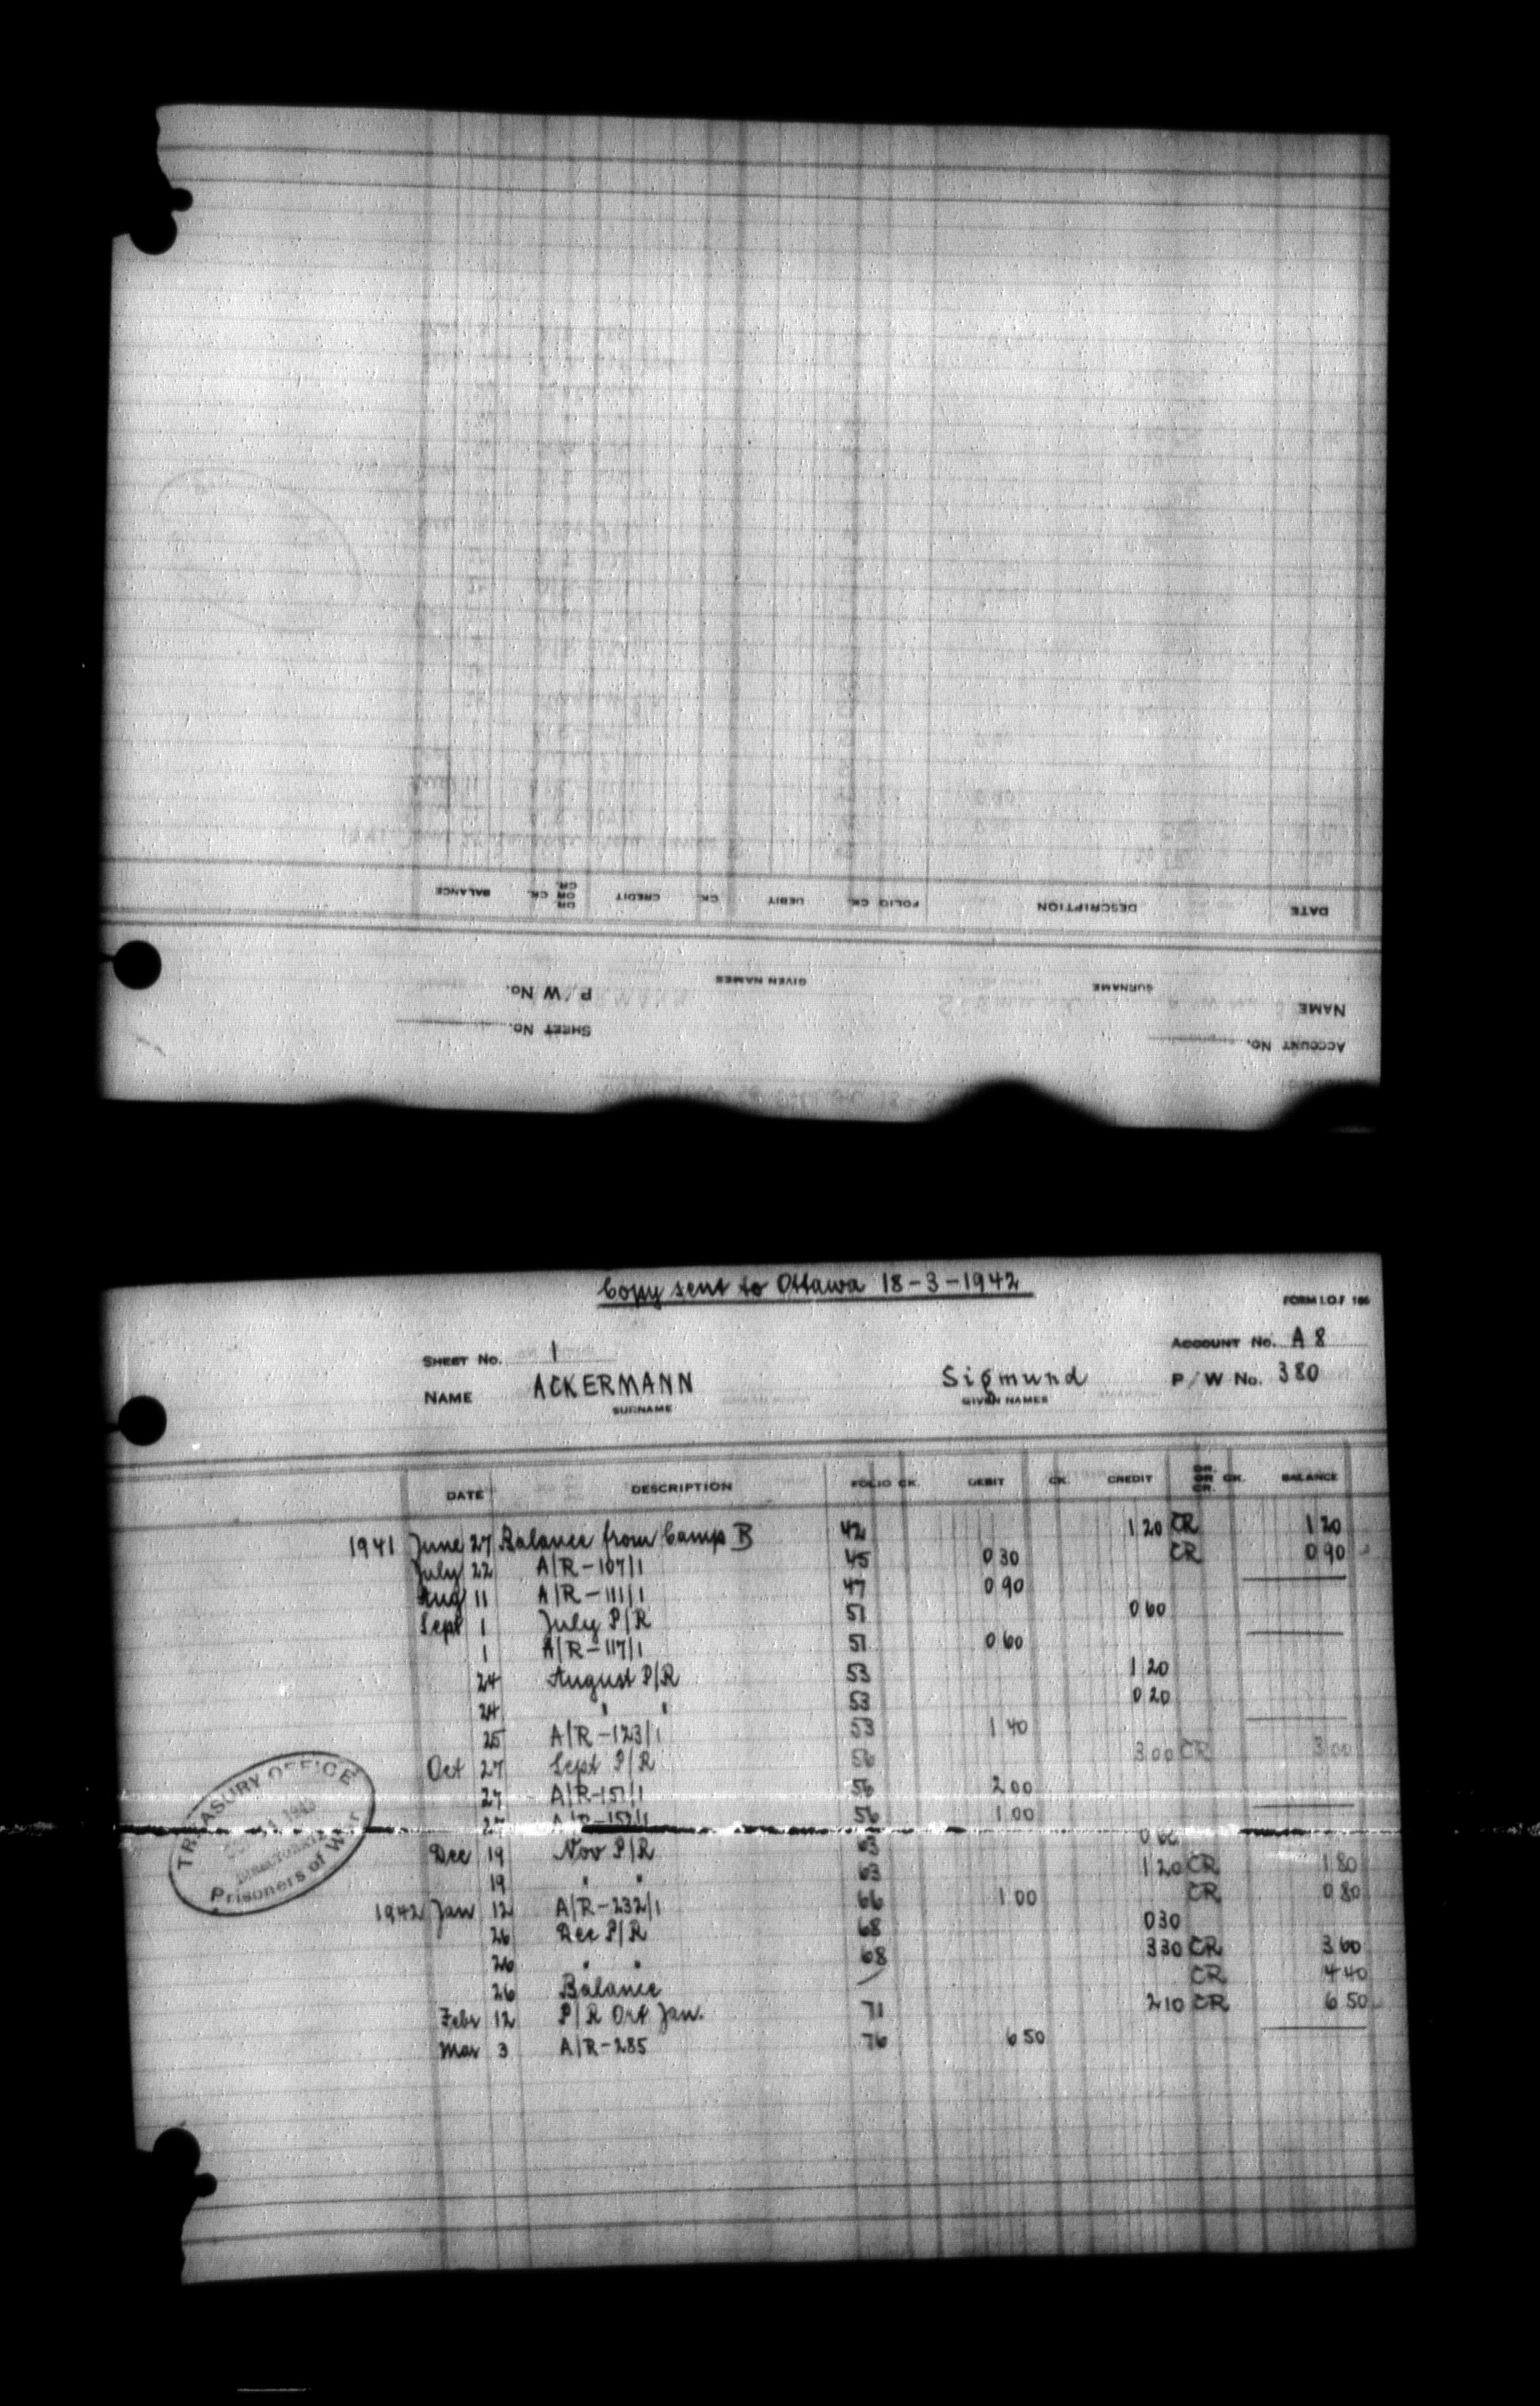 DATE DESCRIPTION FOLIO CK. DEBIT CK. CREDIT DR. OR CR. CK. BALANCE
NAME SURNAME GIVEN NAMES P/W No.
ACCOUNT No. SHEET No.
Copy sent to Ottawa 18-3-1942
FORM I.O.F 166
SHEET No. 1 ACCOUNT No. A 8
NAME ACKERMANN Sigmund P/W No. 380
SURNAME GIVEN NAMES
DATE DESCRIPTION FOLIO CK. DEBIT CK. CREDIT DR. OR CR. CK. BALANCE
1941 June 27 Balance from Camp B 42 1 20 CR 1 20
July 22 A/R-107/1 45 0 30 CR 0 90
Aug 11 A/R-111/1 47 0 90
Sept 1 July P/R 51 0 60
1 A/R-117/1 51 0 60
24 August P/R 53 1 20
24 " " 53 0 20
25 A/R-123/1 53 1 40
Oct 27 Sept P/R 56 3 00 CR 3 00
27 A/R-151/1 56 2 00
27 A/R-152/1 56 1 00
Dec 19 Nov P/R 63 0 60
19 " " 63 1 20 CR 1 80
1942 Jan 12 A/R-232/1 66 1 00 CR 0 80
26 Dec P/R 68 0 30
26 " " 68 3 30 CR 3 60
26 Balance CR 4 40
Febr 12 P/R Jan. 71 2 10 CR 6 50
Mar 3 A/R-285 76 6 50
TREASURY OFFICE
1 1943
DIRECTORATE
Prisoners of War